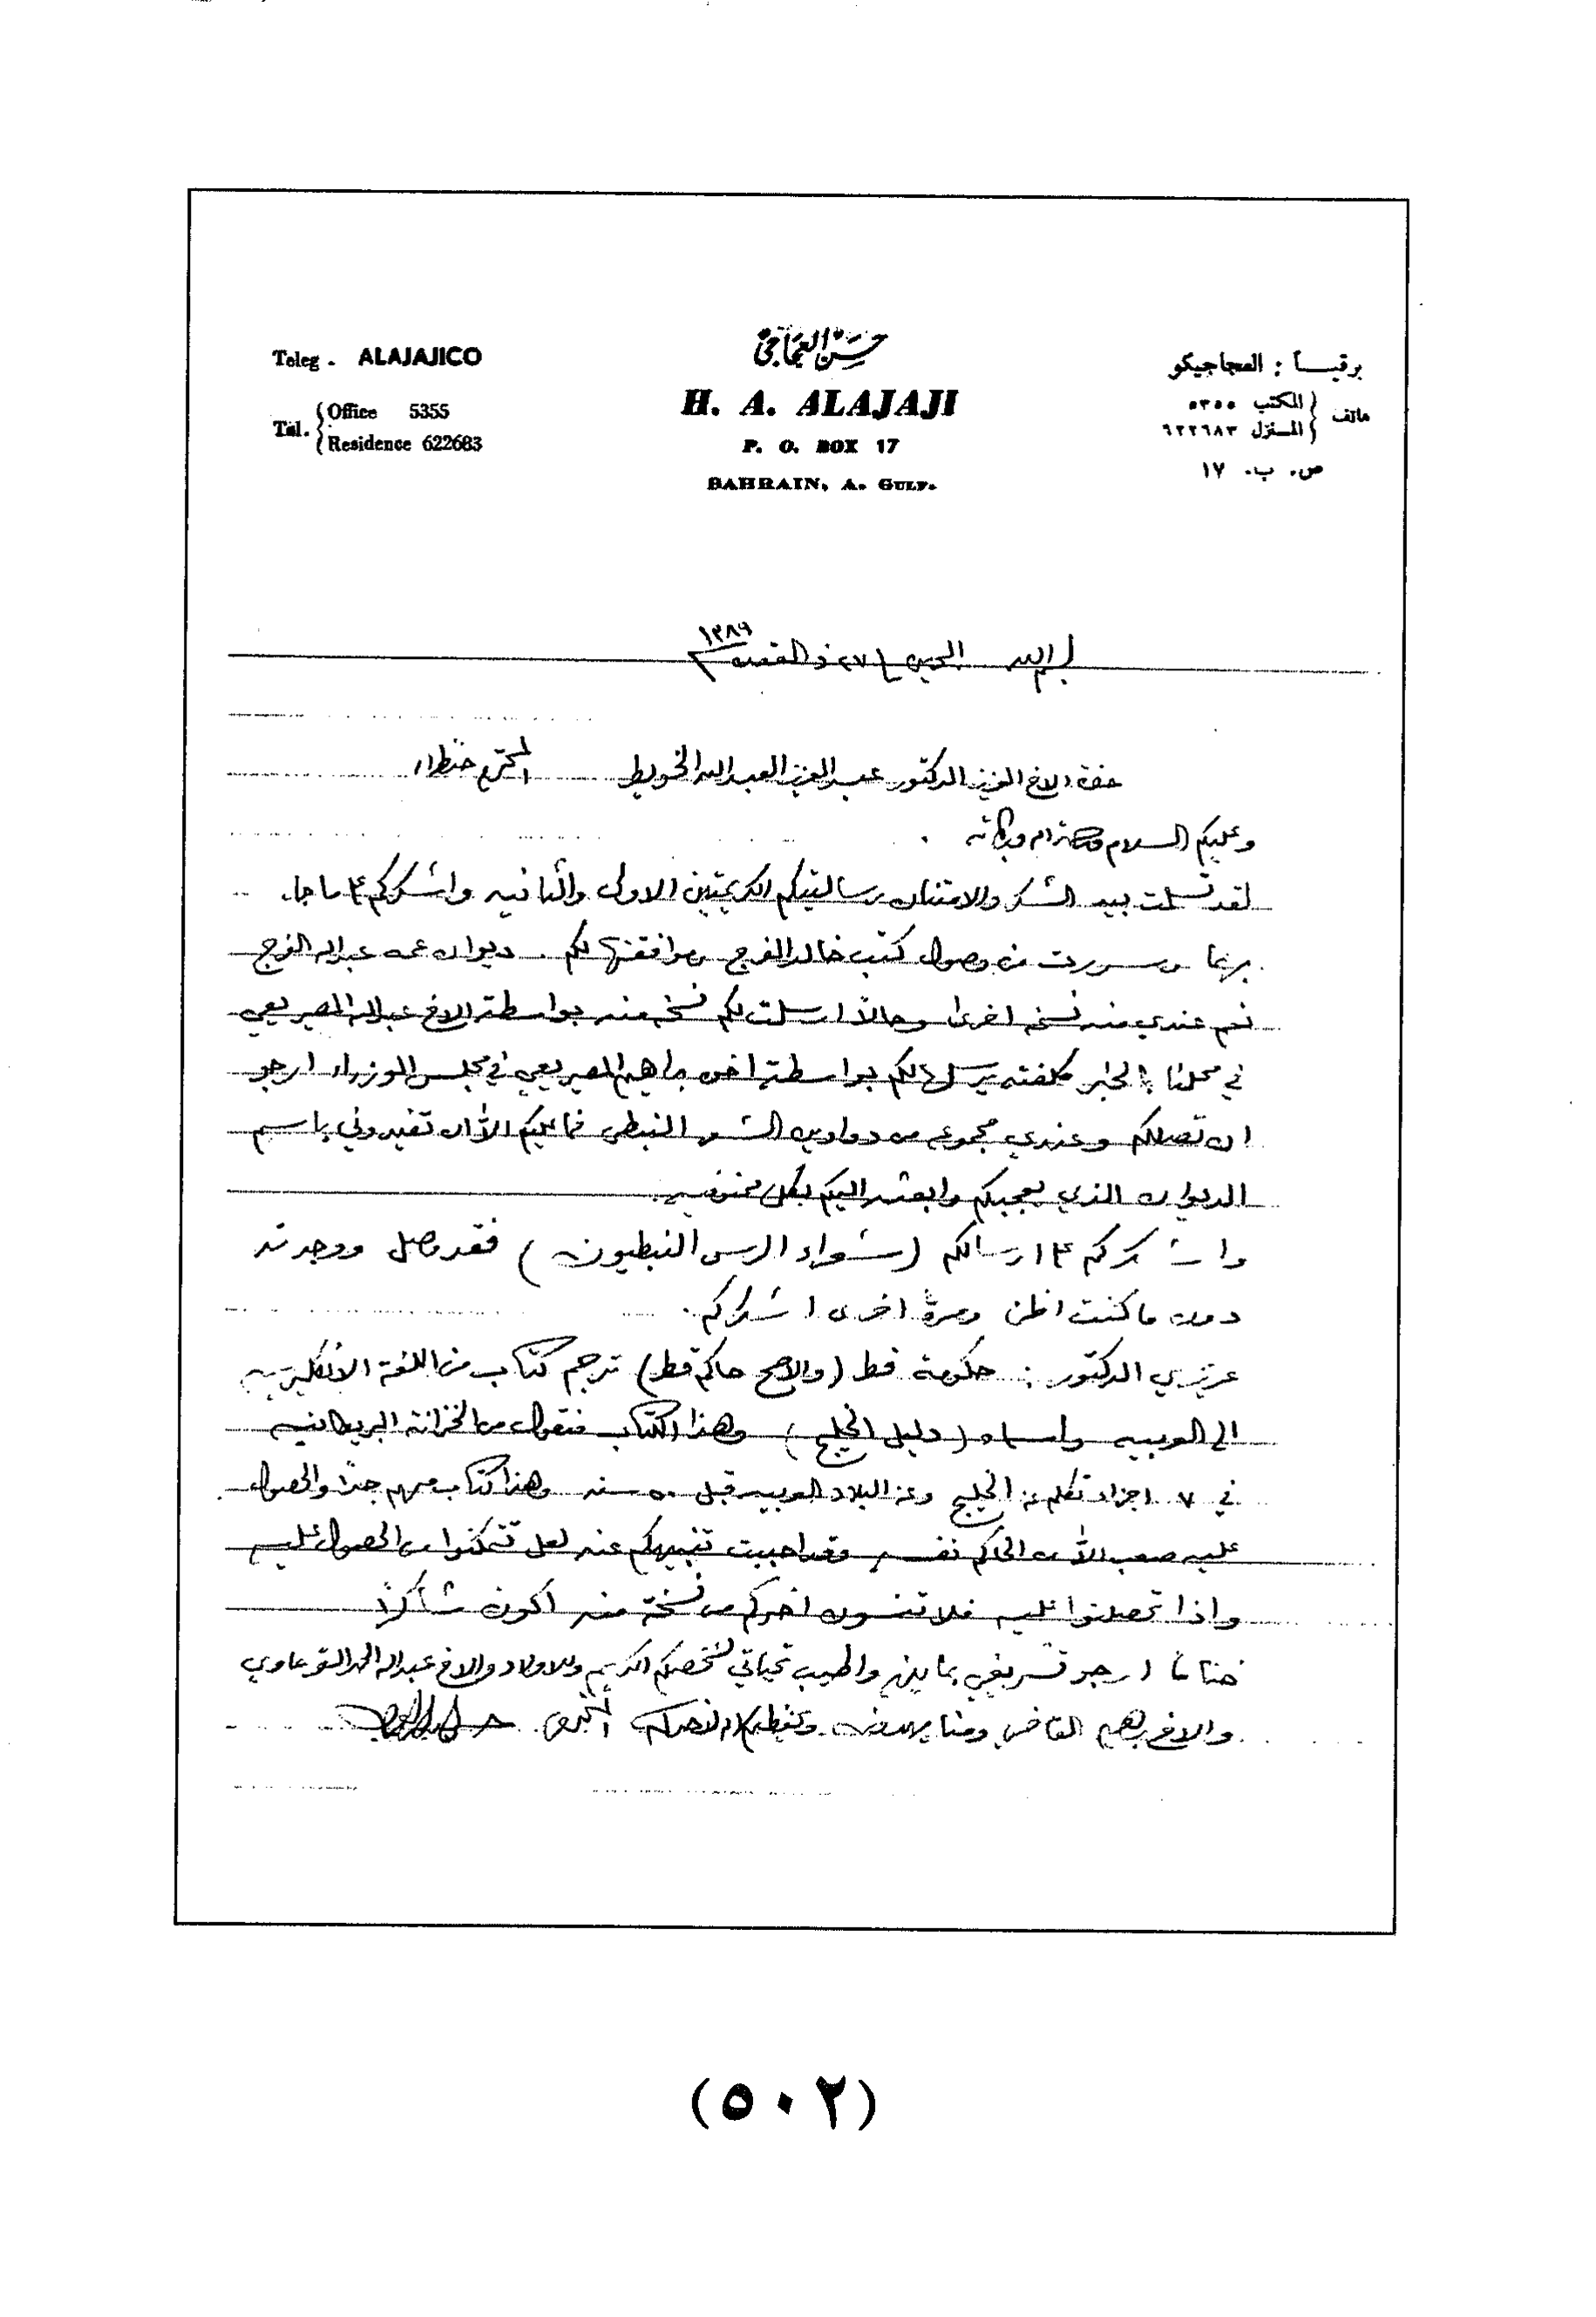 Teleg . ALAJAJICO
Tel. Office 5355
Residence 622683
حسن العجاجي
H. A. ALAJAJI
P. O. BOX 17
BAHRAIN, A. GULF.
برقيــاً : العجاجيكو
هاتف المكتب ٥٣٥٥
المنزل ٦٢٢٦٨٣
ص. ب. ١٧
بسم الله البحرين ٢٧ ذ القعده ١٣٨٩
حضرة الاخ العزيز الدكتور عبد العزيز العبد الله الخويطر المحترم
وعليكم السلام ورحمة الله وبركاته .
لقد تسلمت بيد الشكر والامتنان رسالتيكم الكريمتين الاولى والثانيه واشكركم على ما جاء
بهما وسررت من وصول كتب خالد الفرج وموافقتها لكم . ديوان عمه عبد الله الفرج
نعم عندي منه نسخه اخرى وحالاً ارسلت لكم نسخه منه بواسطة الاخ عبد الله الصريعي
في محلنا بالخبر كلفته يرسلها لكم بواسطة اخو ابراهيم الصريعي في مجلس الوزراء ارجو
ان تصلكم وعندي مجموعه من دواوين الشعر النبطي فما عليكم الا ان تفيدوني باسم
الديوان الذي يعجبكم وابعثه اليكم بكل ممنونيه .
واشكركم على ارسالكم (شعراء الرس النبطيون) فقد وصل ووجدته
دون ما كنت اظن ومرة اخرى اشكركم .
عزيزي الدكتور : حكومة قطر (والاصح حاكم قطر) ترجم كتاب من اللغة الانكليزيه
الى العربيه واسماه (دليل الخليج) وهذا الكتاب منقول من الخزانة البريطانيه
في ٧ اجزاء تكلم عن الخليج وعن البلاد العربيه قبل ٥٠ سنه وهذا كتاب مهم جداً والحصول
عليه صعب الا من الحاكم نفسه وقد احببت تنبيهكم عنه لعل تتمكنوا من الحصول عليه
واذا تحصلتوا عليه فلا تنسون اخوكم من نسخة منه اكون شاكراً
ختاماً ارجو تشريفي بما يلزم واطيب تحياتي لشخصكم الكريم وللاولاد والاخ عبد الله الحمد القرعاوي
والاخ ابراهيم القاضي ومنا يهدونه ويحفظكم الله لاخيكم
(٥٠٢)